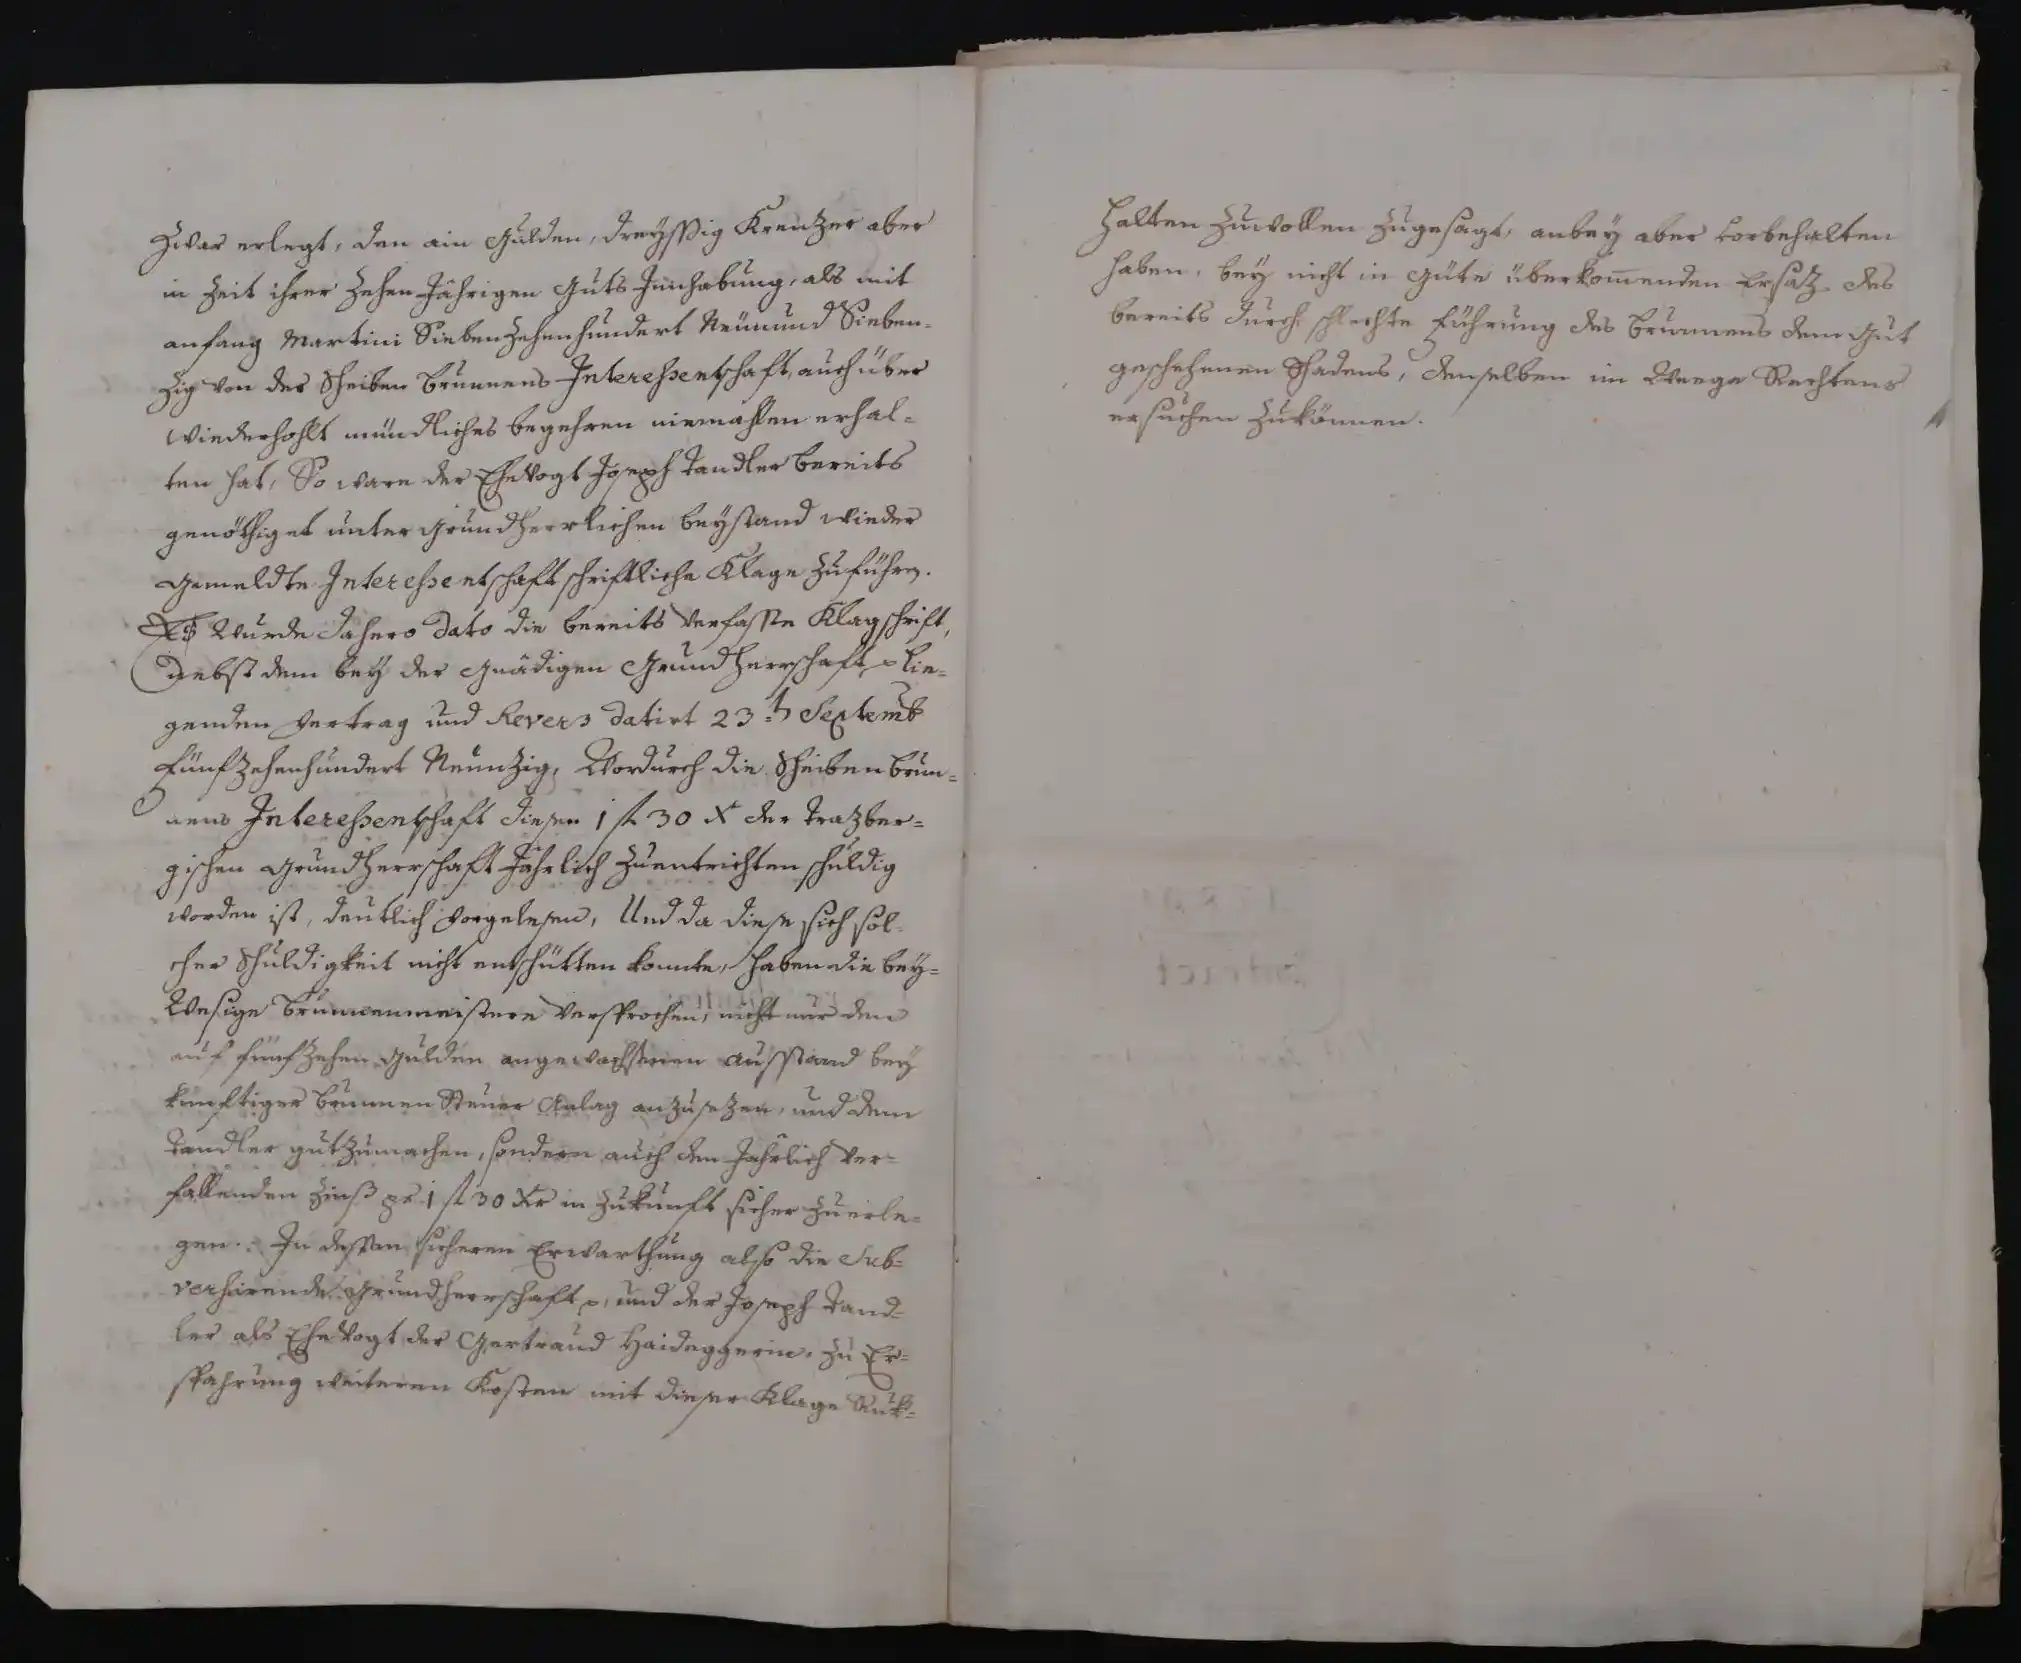 Zwar erlegt, den ain Gulden, dreyssig Kreutzer aber
in Zeit ihrer Zehen Jährigen Guts Innhabung, als mit
anfang Martini Siebenzehenhundert Neünund Sieben-
zig von der Scheiben brunnens Interessentschaft, auch über
wiederhohlt mündliches begehren niemahlen erhal-
ten hat, So ware der EheVogt Joseph Tandler bereits
genöthiget unter grundherrlichen beystand wieder
gemeldte Interessentschaft schriftliche Klage zuführen.
Es wurde dahero dato die bereits verfasste Klagschrift,
nebst dem bey der Gnädigen Grundherrschaft lie-
genden Vertrag und Revers datirt 23.t Septemb
Fünfzehenhundert Neunzig, Wordurch die Scheiben brun-
nens Interessentschaft diesen 1 f 30 X der Trazber-
gischen Grundherrschaft Jährlich zuentrichten schuldig
worden ist, deutlich vorgelesen, Und da diese sich sol-
cher Schuldigkeit nicht entschütten konnte, haben die bey-
Wesige brunnenmeistere versprochen, nicht nur den
auf fünfzehen Gulden angewachsenen Ausstand bey
künftiger brunnen Steuer Anlag anzusezen, und dem
Tandler gutzumachen, sondern auch den Jährlich ver-
fallenden Zinß pr 1 f 30 Xr in Zukunft sicher zuerle-
gen. In dessen sicheren Erwarthung also die Sub-
verhirende Grundherrschaft, und der Joseph Tand-
ler als EheVogt der Gertraud Haideggerin, zu Er-
spahrung weiteren Kosten mit dieser Klage Ruk-
halten zuwollen zugesagt, anbey aber vorbehalten
haben, bey nicht in Güte überkomenden Ersaz des
bereits durch schlechte Führung des brunnens dem Gut
geschehenen Schadens, denselben im Weege Rechtens
ersuchen zukönnen.